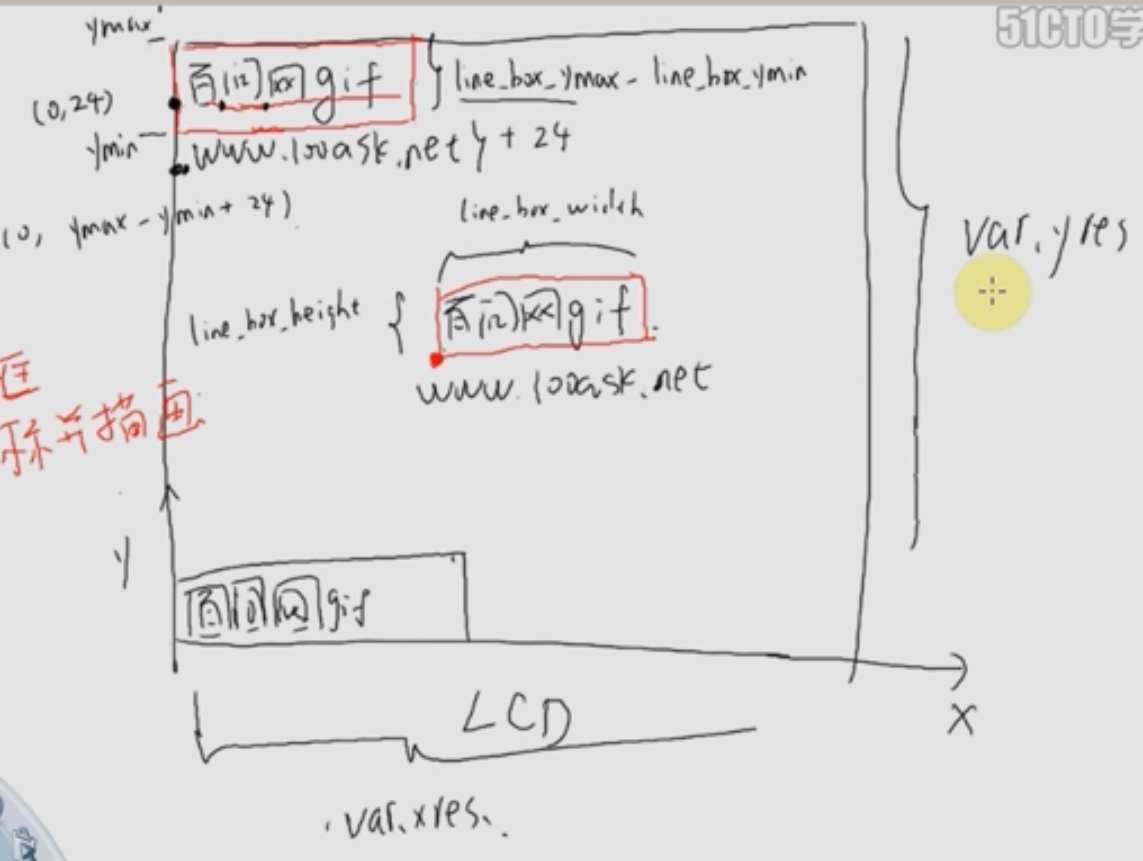 51CTO学
ymax
百问网gif
line_box_ymax - line_box_ymin
(0,24)
ymin
www.100ask.net y + 24
(0, ymax - ymin + 24)
line_box_width
var.yres
line_box_height
百问网gif
www.100ask.net
框
标并描画
y
百问网gif
LCD
X
var.xres.